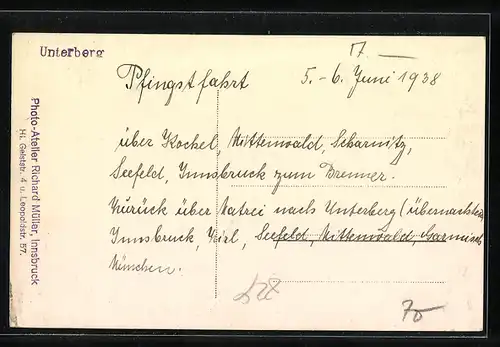 Unterberg
7.—
Pfingstfahrt 5.-6. Juni 1938
über Kochel, Mittenwald, Scharnitz,
Seefeld, Innsbruck zum Brenner.
Zurück über Matrei nach Unterberg (übernachtet)
Innsbruck, Zirl, Seefeld, Mittenwald, Garmisch
München.
70
Photo-Atelier Richard Müller, Innsbruck
Hl. Geiststr. 4 u. Leopoldstr. 57.